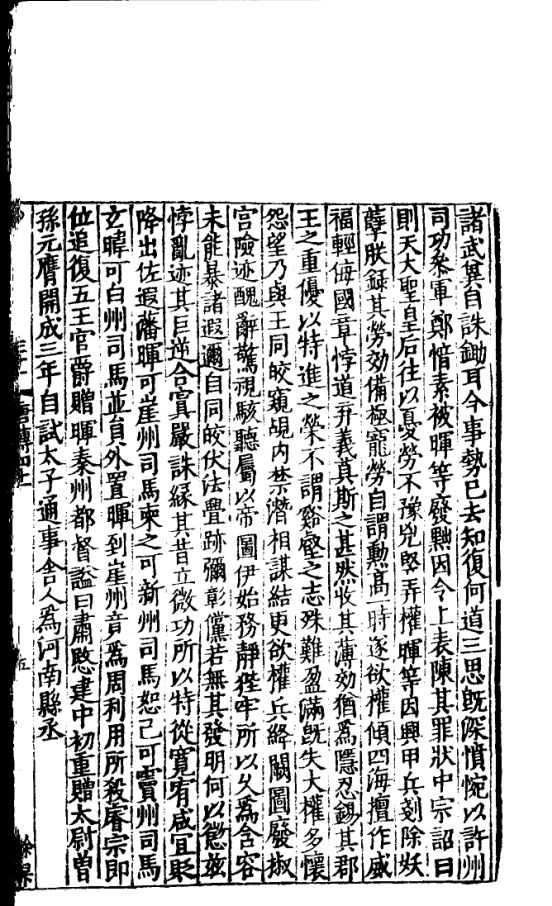 諸武冀自誅鋤耳今事勢已去知復何道三思旣深憤惋以許州
司功參軍鄭愔素被暉等廢黜因令上表陳其罪狀中宗詔曰
則天大聖皇后往以憂勞不豫兇竪弄權暉等因興甲兵剗除妖
孽朕錄其勞効備極寵勞自謂勳高一時遂欲權傾四海擅作威
福輕侮國章悖道弃義莫斯之甚然收其薄効猶爲隱忍錫其郡
王之重優以特進之榮不謂谿壑之志殊難盈滿旣失大權多懷
怨望乃與王同皎窺覘內禁潛相謀結更欲權兵絳闕圖廢椒
宮險迹醜辭驚視駭聽屬以帝圖伊始務靜狴牢所以久爲含容
未能暴諸遐邇自同皎伏法舋跡彌彰儻若無其發明何以懲茲
悖亂迹其巨逆合寘嚴誅緣其昔立微功所以特從寬宥咸宜貶
降出佐遐藩暉可崖州司馬柬之可新州司馬恕己可竇州司馬
玄暐可白州司馬並員外置暉到崖州竟爲周利用所殺睿宗卽
位追復五王官爵贈暉秦州都督謚曰肅愍建中初重贈太尉曾
孫元膺開成三年自試太子通事舍人爲河南縣丞
唐傳四十一
五